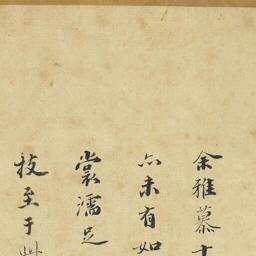 余雅慕十
亦未有如
裳濡足
技至于此